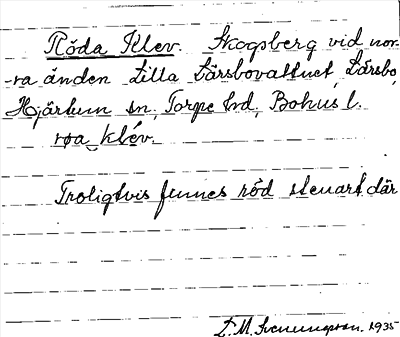 Röda Klev. Skogsberg vid nor-
-ra änden Lilla Lärsbovattnet, Lärsbo,
Hjärtum sn, Torpe hd, Bohus l.
røa klév.
Troligtvis finnes röd stenart där
L. M. Svenungsson. 1935